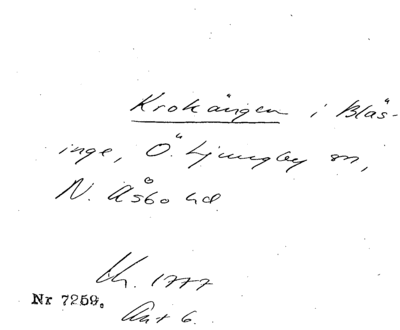 Krokängen i Bläs-
inge, Ö. Ljungby sn,
N. Åsbo hd
1777
Nr 7259.
Akt 6.